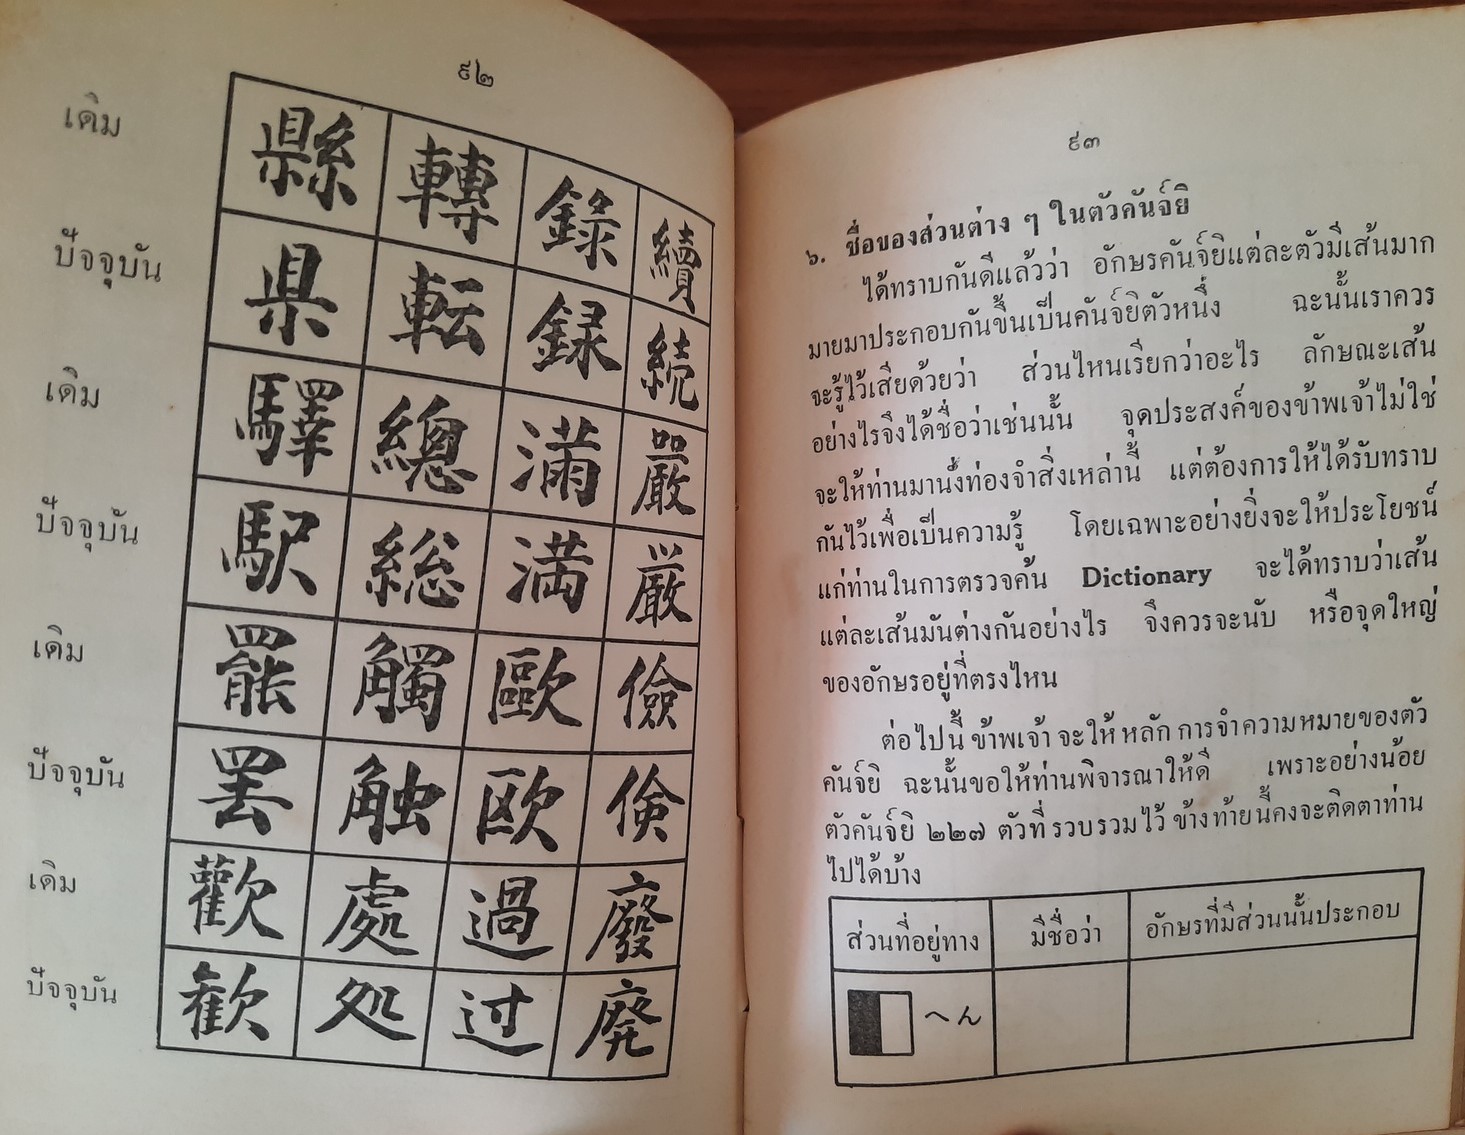 ๙๒
เดิม 縣 轉 錄 續
ปัจจุบัน 県 転 録 続
เดิม 驛 總 滿 嚴
ปัจจุบัน 駅 総 満 厳
เดิม 罷 觸 歐 儉
ปัจจุบัน 罢 触 欧 倹
เดิม 歡 處 過 廢
ปัจจุบัน 歓 処 过 廃
๙๓
๖. ชื่อของส่วนต่าง ๆ ในตัวคันจ์ยิ
ได้ทราบกันดีแล้วว่า อักษรคันจ์ยิแต่ละตัวมีเส้นมาก
มายมาประกอบกันขึ้นเป็นคันจ์ยิตัวหนึ่ง ฉะนั้นเราควร
จะรู้ไว้เสียด้วยว่า ส่วนไหนเรียกว่าอะไร ลักษณะเส้น
อย่างไรจึงได้ชื่อว่าเช่นนั้น จุดประสงค์ของข้าพเจ้าไม่ใช่
จะให้ท่านมานั่งท่องจำสิ่งเหล่านี้ แต่ต้องการให้ได้รับทราบ
กันไว้เพื่อเป็นความรู้ โดยเฉพาะอย่างยิ่งจะให้ประโยชน์
แก่ท่านในการตรวจค้น Dictionary จะได้ทราบว่าเส้น
แต่ละเส้นมันต่างกันอย่างไร จึงควรจะนับ หรือจุดใหญ่
ของอักษรอยู่ที่ตรงไหน
ต่อไปนี้ ข้าพเจ้า จะให้ หลัก การจำความหมายของตัว
คันจ์ยิ ฉะนั้นขอให้ท่านพิจารณาให้ดี เพราะอย่างน้อย
ตัวคันจ์ยิ ๒๒๗ ตัวที่ รวบรวมไว้ ข้างท้ายนี้คงจะติดตาท่าน
ไปได้บ้าง
ส่วนที่อยู่ทาง มีชื่อว่า อักษรที่มีส่วนนั้นประกอบ
へん